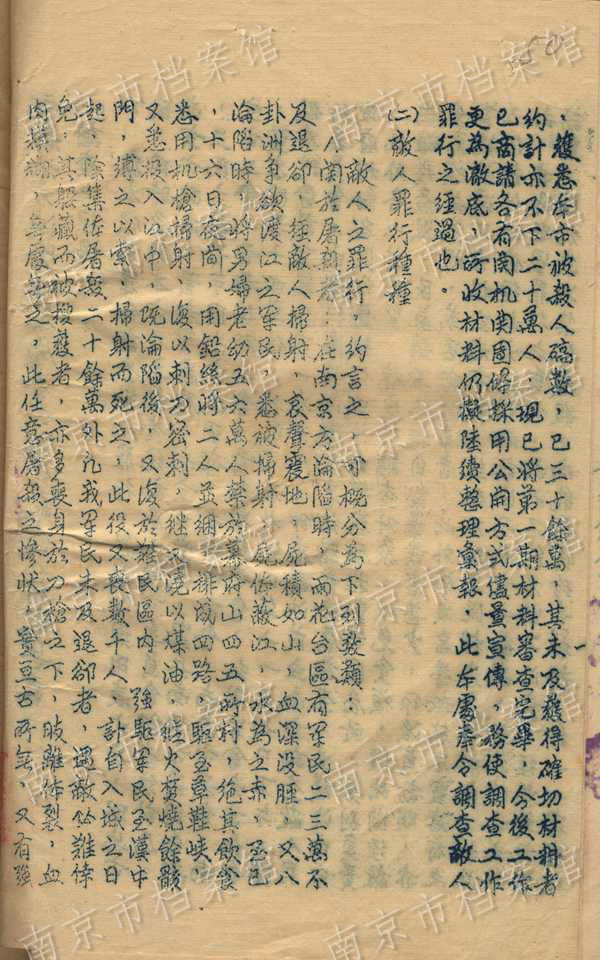 ，獲悉本市被殺人確數，已三十餘萬，其未及獲得確切材料者
約計亦不下二十萬人，現已將第一期材料審查完畢，今後工作
已商請各有關机関團体採用公開方式儘量宣傳，務使調查工作
更為澈底，所收材料仍擬陸續整理彙報，此本處奉令調查敵人
罪行之經過也。
(二)敵人罪行種種
敵人之罪行，約言之，可概分為下列數類：
八、関於屠殺者：在南京方淪陷時，雨花台區有軍民二三萬不
及退卻，經敵人掃射，哀聲震地，屍積如山，血深没脛，又八
卦洲爭欲渡江之軍民，悉被掃射，屍体蔽江，水為之赤，至已
淪陷時，將男婦老幼五六萬人禁於幕府山四五所村，絶其飲食
，十六日夜間，用鉛絲將二人並綑，排成四路，驅至草鞋峽，
悉用机槍掃射，復以刺刀密刺，継又澆以煤油，縱火焚燒餘骸
又悉投入江中，既淪陷後，又復於難民區内，強駆軍民至漢中
門，縛之以索，掃射而死之，此役又喪數千人，計自入城之日
起，除集体屠殺二十餘萬外，凡我軍民未及退卻者，遇敵公難倖
免，其躲藏而被搜獲者，亦多喪身於刀槍之下，肢離体裂，血
肉模糊，無處無之，此任意屠殺之慘狀，實亘古所無，又有強
南京市档案馆